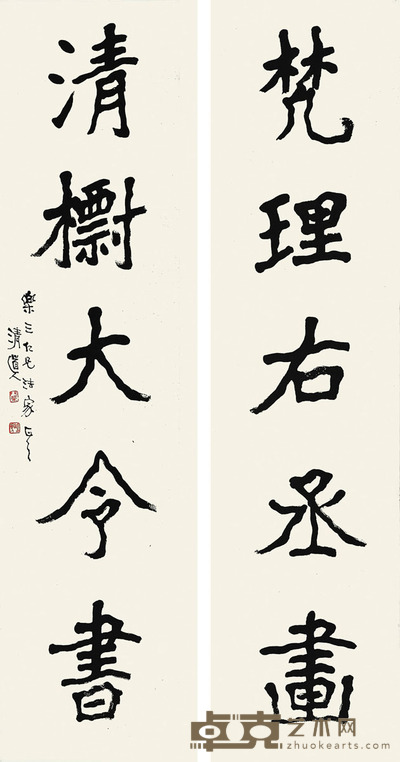 梵理右丞畫
清大令書
樂三仁兄法家正之
清道人
卓克艺术网
zhuokearts.com